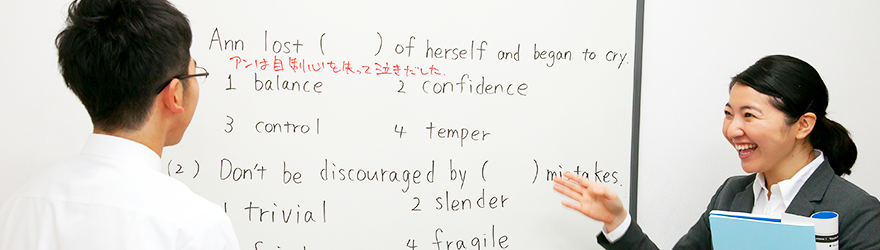 Ann lost (   ) of herself and began to cry.
アンは自制心を失って泣きだした.
1 balance 2 confidence
3 control 4 temper
(2) Don't be discouraged by (   ) mistakes.
1 trivial 2 slender
4 fragile